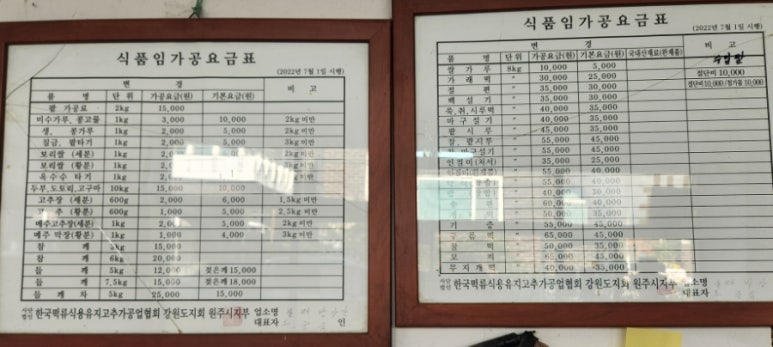 식품임가공요금표
(2022년 7월 1일 시행)
변 경
품 명 단 위 가공요금(원) 기본요금(원) 비 고
팥 가공료 2kg 15,000
미수가루, 콩고물 1kg 3,000 10,000 2kg 미만
생, 콩가루 1kg 2,000 5,000 2kg 미만
질금, 쌀타기 1kg 2,000 5,000 3kg 미만
보리쌀 (세분) 1kg 5,000 2kg 미만
보리쌀 (황분) 1kg 2kg 미만
옥수수 타기 1kg 2kg 미만
두부,도토리,고구마 10kg 15,000 10,000
고추장 (세분) 600g 2,000 6,000 1.5kg 미만
고 추 (황분) 600g 1,000 5,000 2.5kg 미만
메주고추장(세분) 1kg 2,000 5,000 2kg 미만
메주 막장(황분) 1kg 1,000 4,000 3kg 미만
참 깨 15,000
참 깨 6kg 20,000
들 깨 5kg 12,000 젖은깨 15,000
들 깨 7.5kg 15,000 젖은깨 18,000
들 깨 차 5kg 25,000 15,000
사단법인 한국떡류식용유지고추가공업협회 강원도지회 원주시지부 업소명
대표자 인
식품임가공요금표
(2022년 7월 1일 시행)
변 경
품 명 단 위 가공요금(원) 기본요금(원) 국내산재료(완제품) 비 고
쌀 가 루 8kg 10,000 5,000
가 래 떡 〃 30,000 25,000 절단비 10,000
절 편 〃 35,000 30,000 절단비10,000/첨가물 10,000
백 설 기 〃 35,000 30,000
쑥,취,시루떡 〃 40,000 35,000
마 구 설 기 〃 40,000 35,000
팥 시 루 〃 45,000 35,000
찰, 팥시루 〃 55,000 45,000
55,000 40,000
인절미(처서) 〃 35,000 25,000
55,000 40,000
40,000
60,000 40,000
50,000 35,000
기 증 〃 55,000 45,000
구 름 떡 〃 65,000 45,000
꿀 떡 〃 50,000 35,000
모 찌 〃 65,000 45,000
무 지 개 떡 〃 40,000 35,000
사단법인 한국떡류식용유지고추가공업협회 강원도지회 원주시지부 업소명
대표자